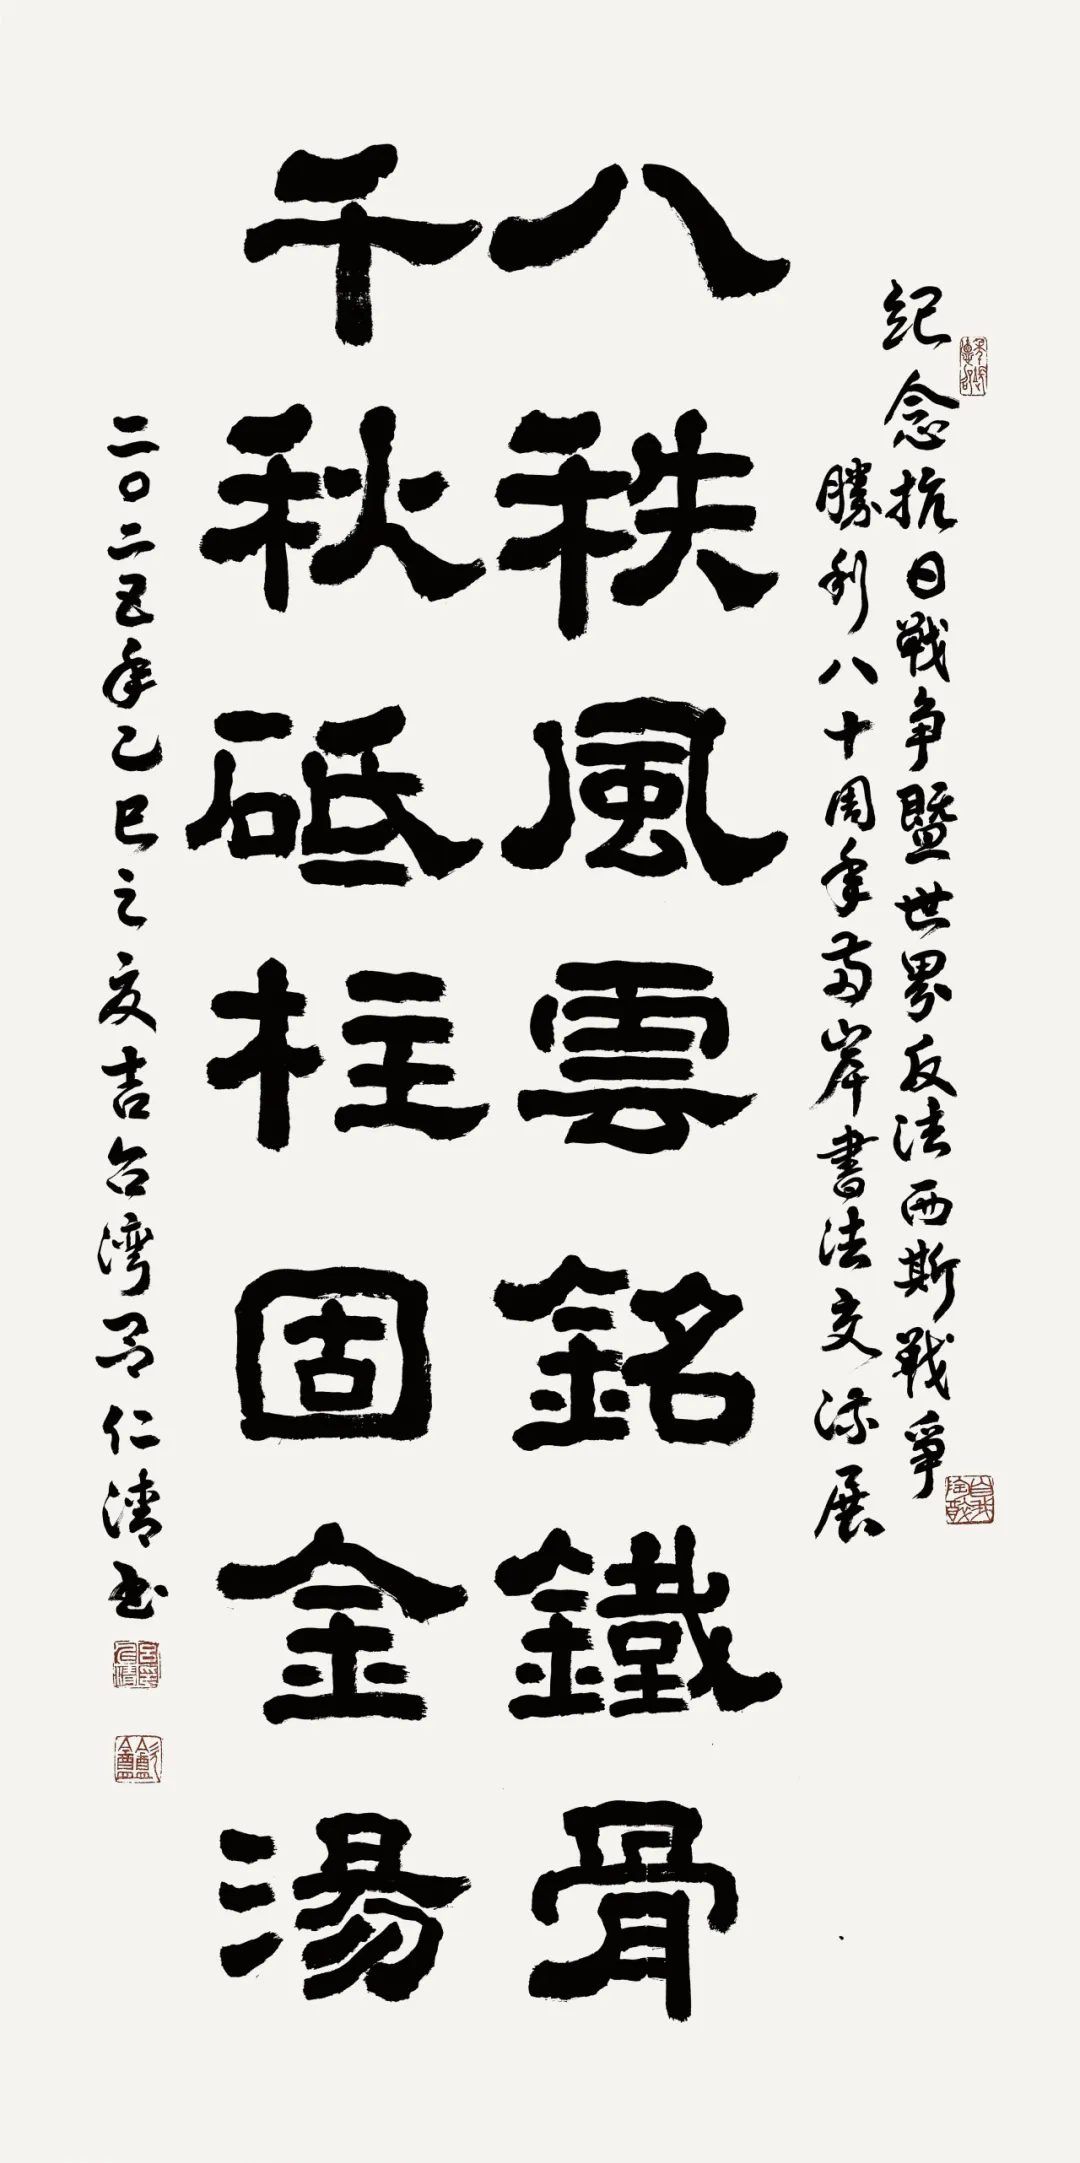 紀念抗日戰争暨世界反法西斯戰爭
勝利八十周年两岸書法交流展
八秩風雲銘鐵骨
千秋砥柱固金湯
二〇二五年乙巳之夏吉台湾吕仁清书